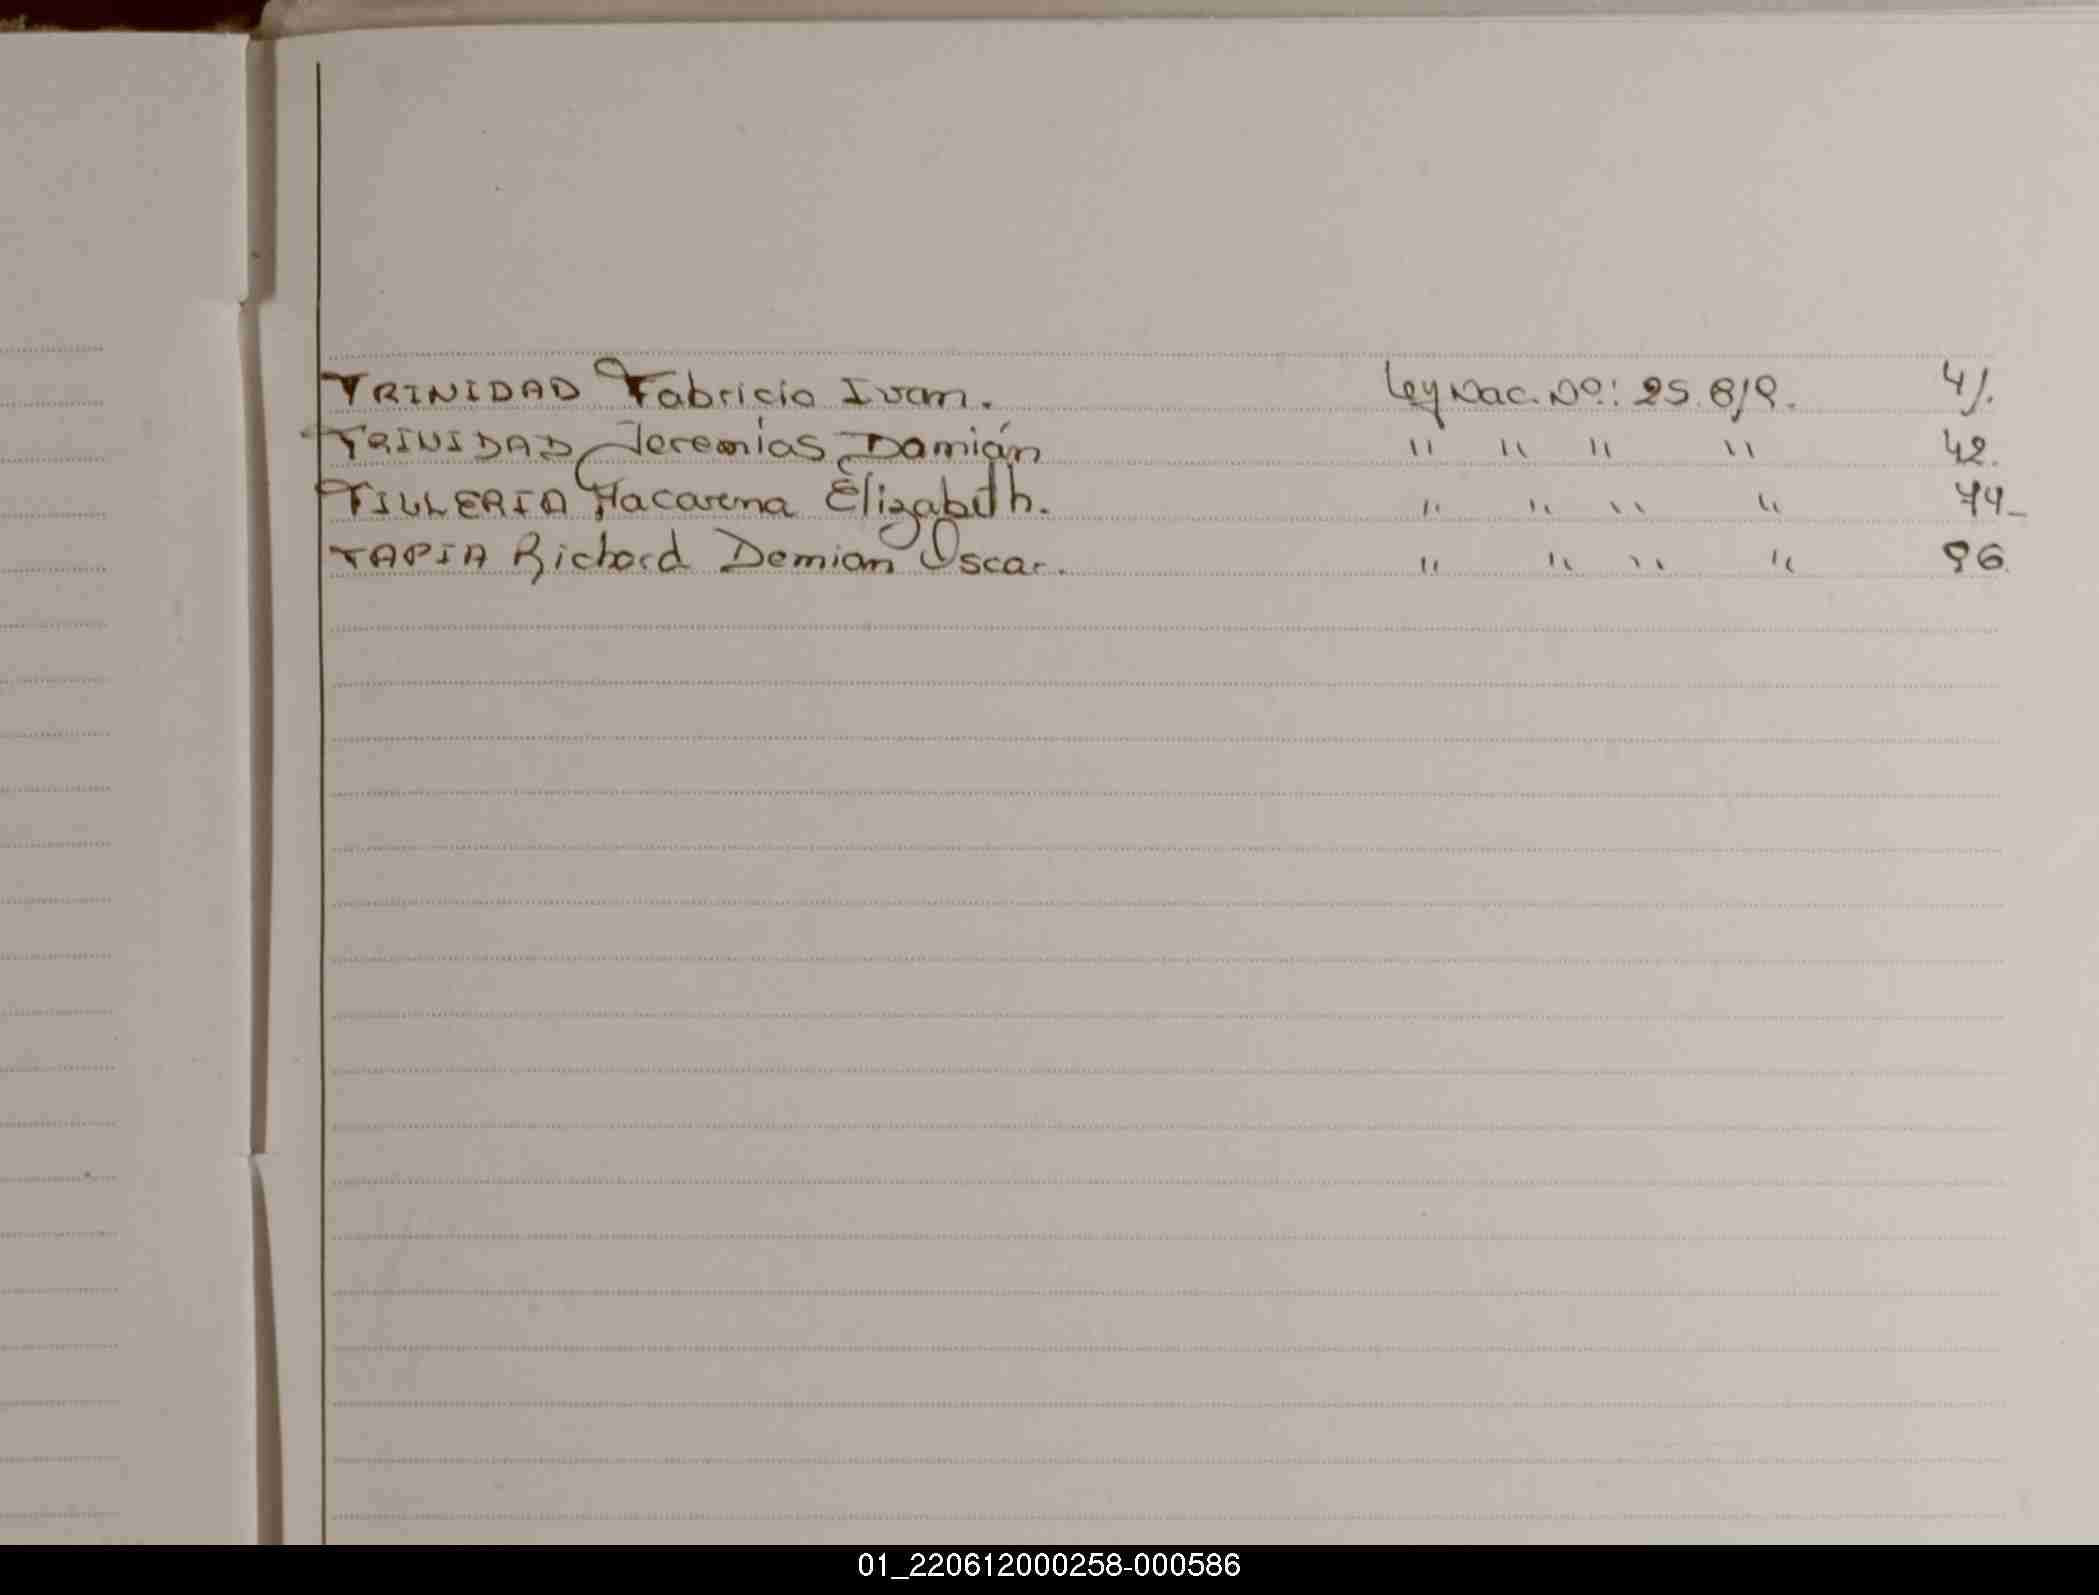 TRINIDAD Fabricio Ivan. Ley Nac. Nº: 25.819. 41.
TRINIDAD Jeremías Damián " " " " 42.
TILLERIA Macarena Elizabeth. " " " " 74-
TAPIA Richard Demian Oscar. " " " " 96.
01_220612000258-000586